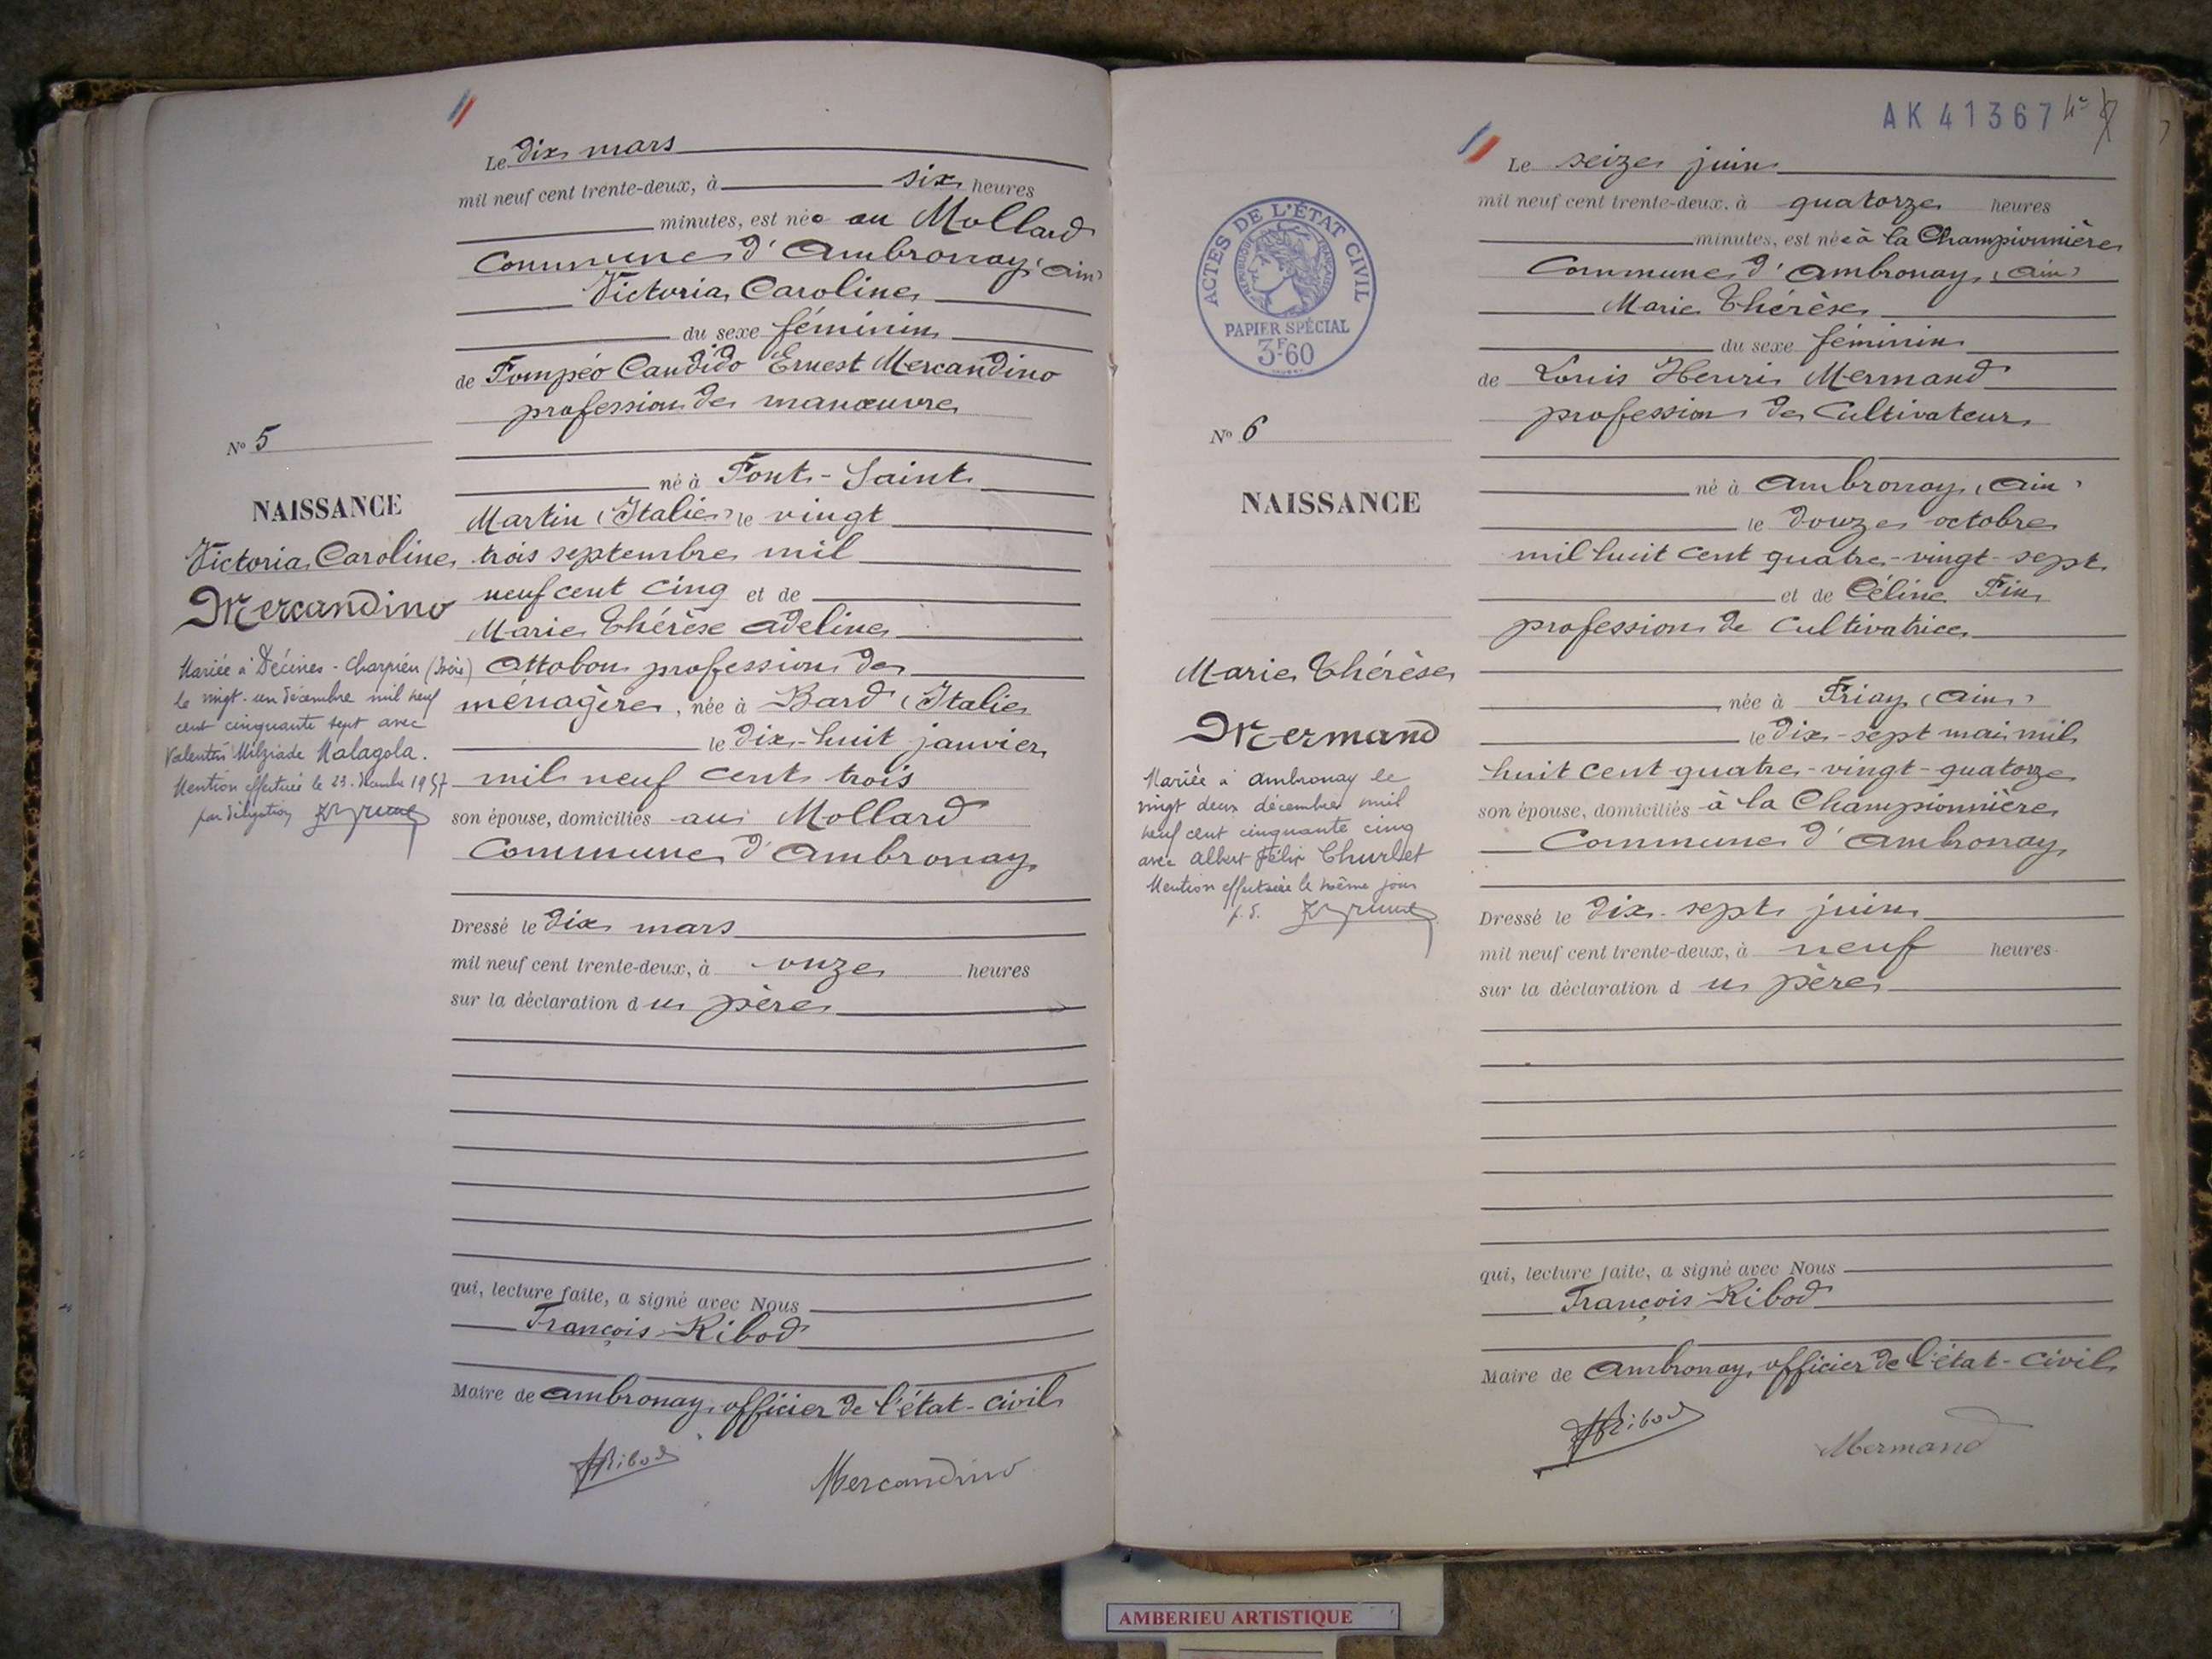 Le dix mars
mil neuf cent trente-deux, à six heures
minutes, est née au Mollard
Commune d'Ambronay (Ain)
Victoria Caroline
du sexe féminin
de Pompéo Candido Ernest Mercandino
profession de manœuvre
N° 5
né à Pont-Saint
NAISSANCE
Martin (Italie) le vingt
Victoria Caroline
trois septembre mil
Mercandino
neuf cent cinq et de
Marie Thérèse Adeline
Mariée à Décines-Charpieu (Isère)
le vingt-un décembre mil neuf
cent cinquante sept avec
Valentin Milziade Malagola.
Mention effectuée le 23 décembre 1957
par délégation
Ottobon profession de
ménagère, née à Bard (Italie
le dix-huit janvier
mil neuf cent trois
son épouse, domiciliés au Mollard
Commune d'Ambronay
Dressé le dix mars
mil neuf cent trente-deux, à onze heures
sur la déclaration du père
qui, lecture faite, a signé avec Nous
François Ribod
Maire de Ambronay, officier de l'état-civil
Ribod
Mercandino
AK 41367
ACTES DE L'ÉTAT CIVIL
RÉPUBLIQUE FRANÇAISE
PAPIER SPÉCIAL
3F60
Le seize juin
mil neuf cent trente-deux, à quatorze heures
minutes, est née à la Championnière
Commune d'Ambronay (Ain)
Marie Thérèse
du sexe féminin
de Louis Henri Mermand
profession de Cultivateur
N° 6
né à Ambronay (Ain)
NAISSANCE
le douze octobre
mil huit cent quatre-vingt-sept
et de Céline Pin
profession de Cultivatrice
Marie Thérèse
née à Priay (Ain)
Mermand
le dix-sept mai mil
huit cent quatre-vingt-quatorze
Mariée à Ambronay le
vingt deux décembre mil
neuf cent cinquante cinq
avec Albert Félix Churlet
Mention effectuée le même jour
p.d.
son épouse, domiciliés à la Championnière
Commune d'Ambronay
Dressé le dix-sept juin
mil neuf cent trente-deux, à neuf heures
sur la déclaration du père
qui, lecture faite, a signé avec Nous
François Ribod
Maire de Ambronay, officier de l'état-civil
Ribod
Mermand
AMBERIEU ARTISTIQUE